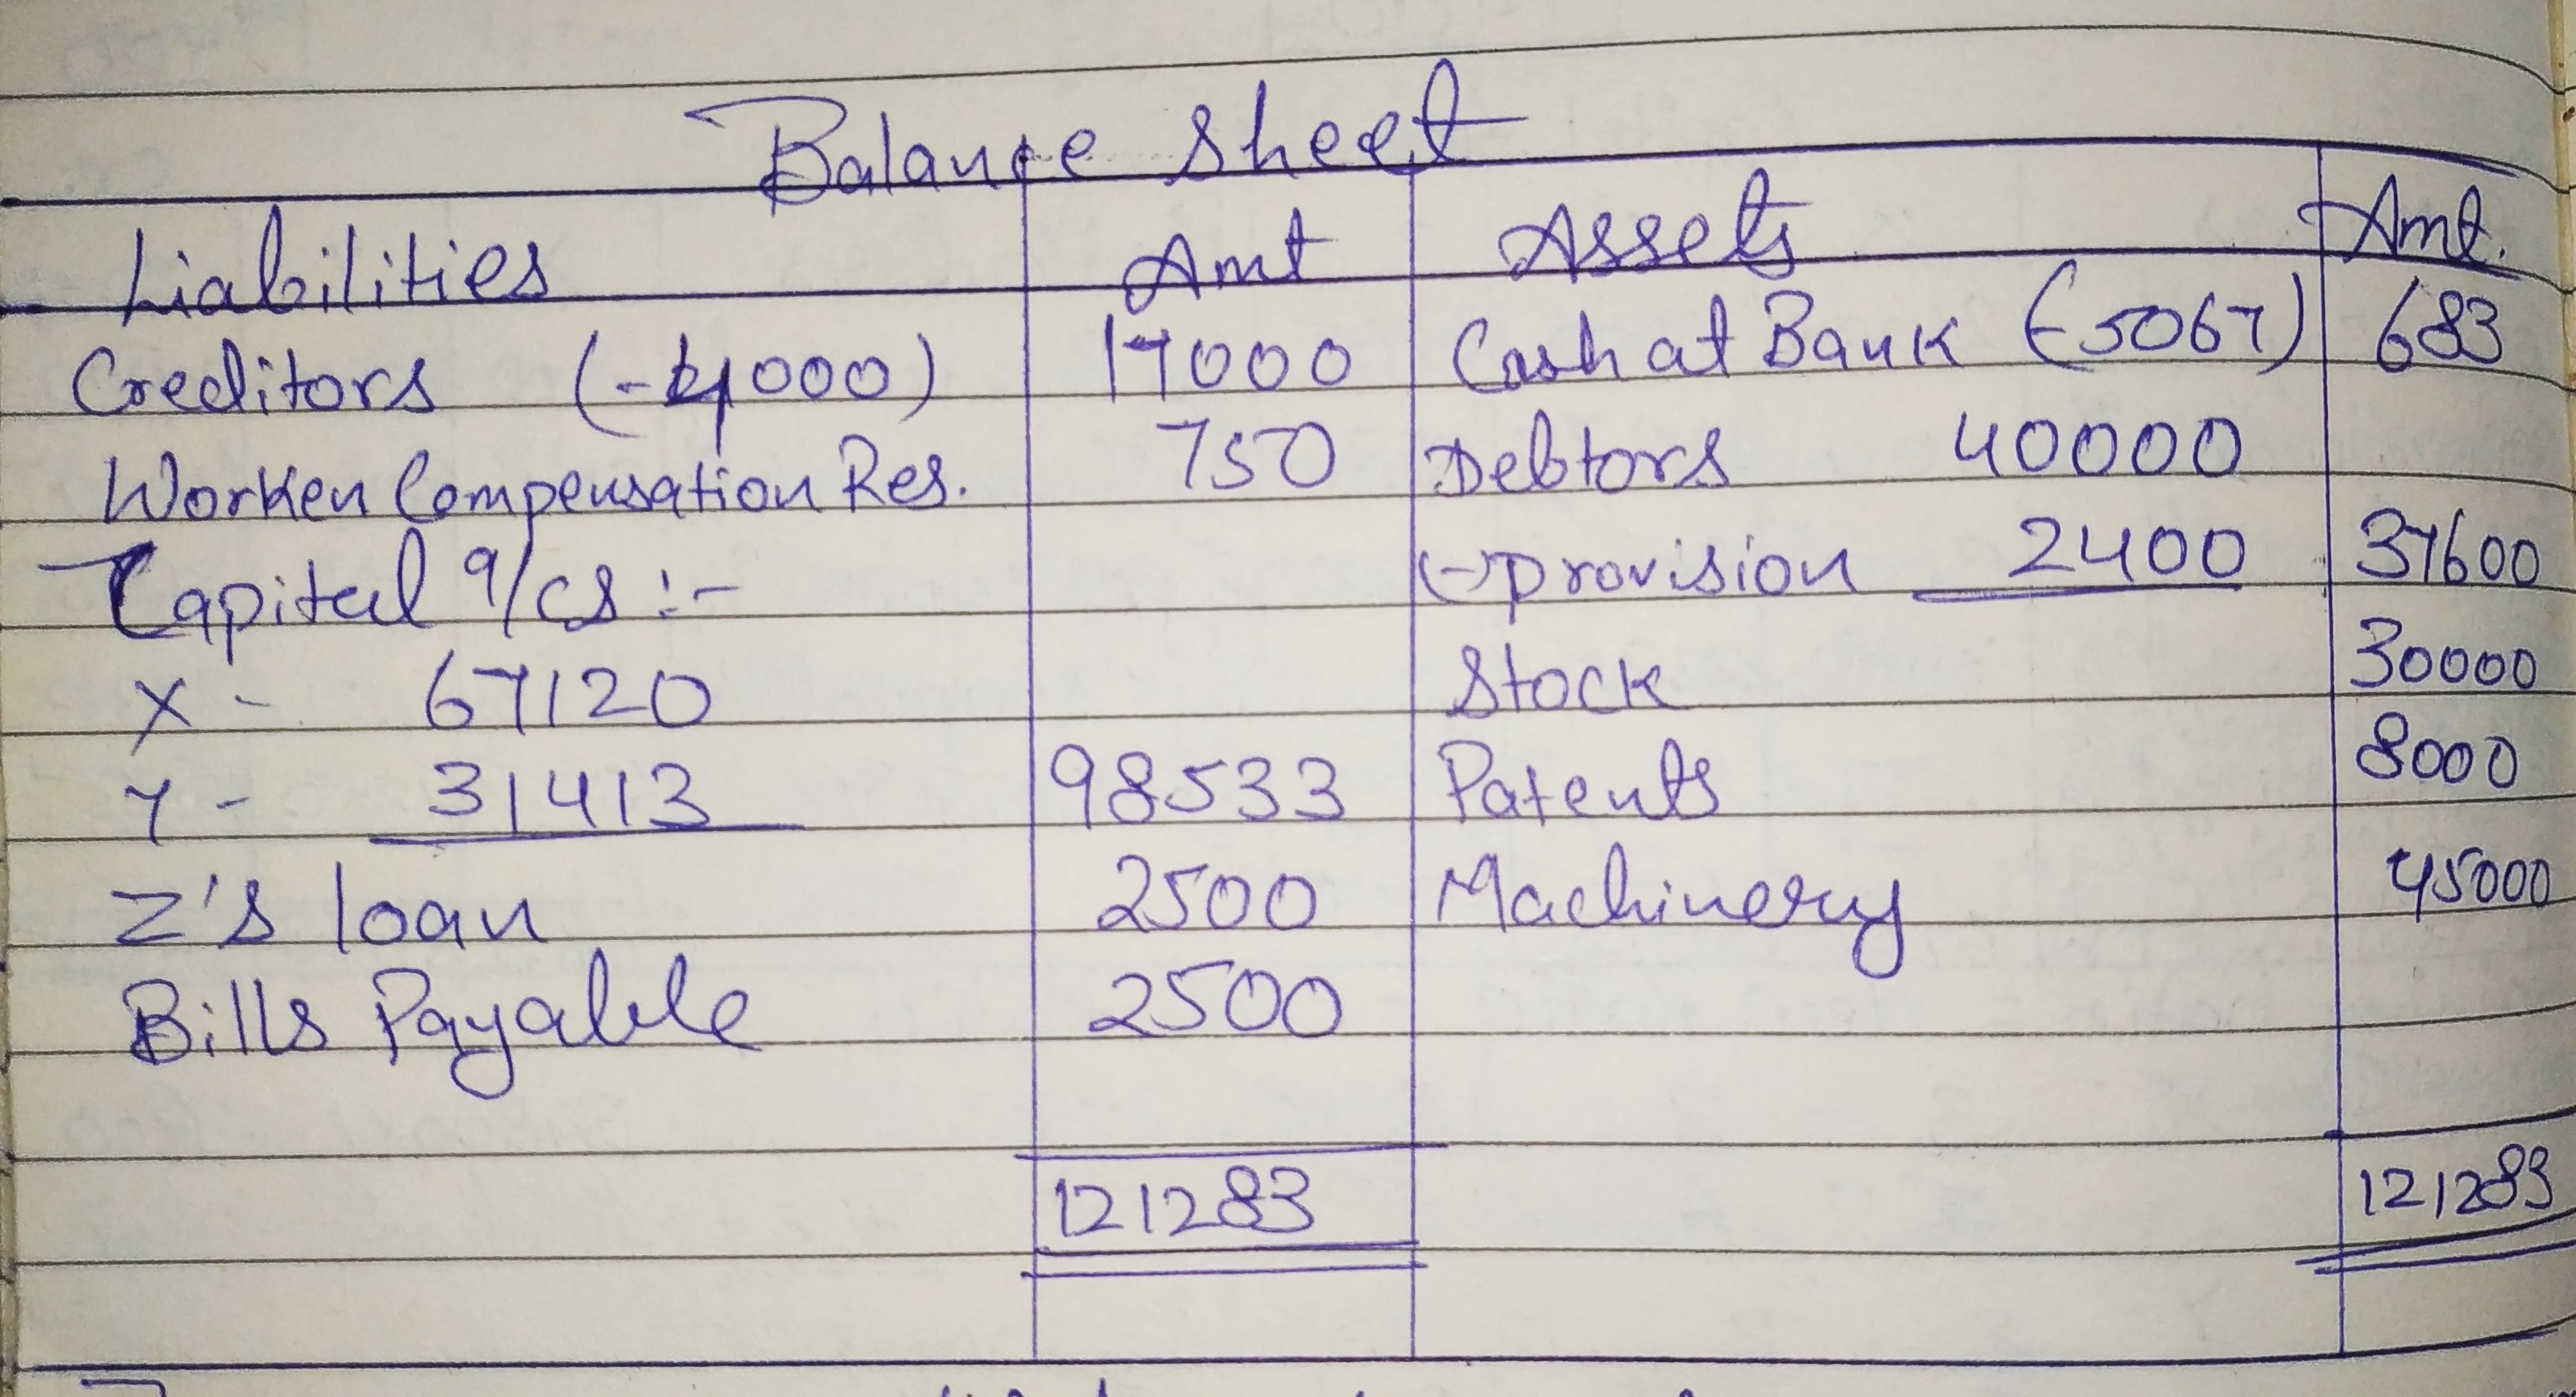 Balance Sheet
Liabilities Amt Assets Amt.
Creditors (-4000) 17000 Cash at Bank (-5067) 683
Worken Compensation Res. 750 Debtors 40000
Capital a/cs :- (-) provision 2400 37600
X - 67120 Stock 30000
Y - 31413 98533 Patents 8000
Z's loan 2500 Machinery 45000
Bills Payable 2500
121283 121283